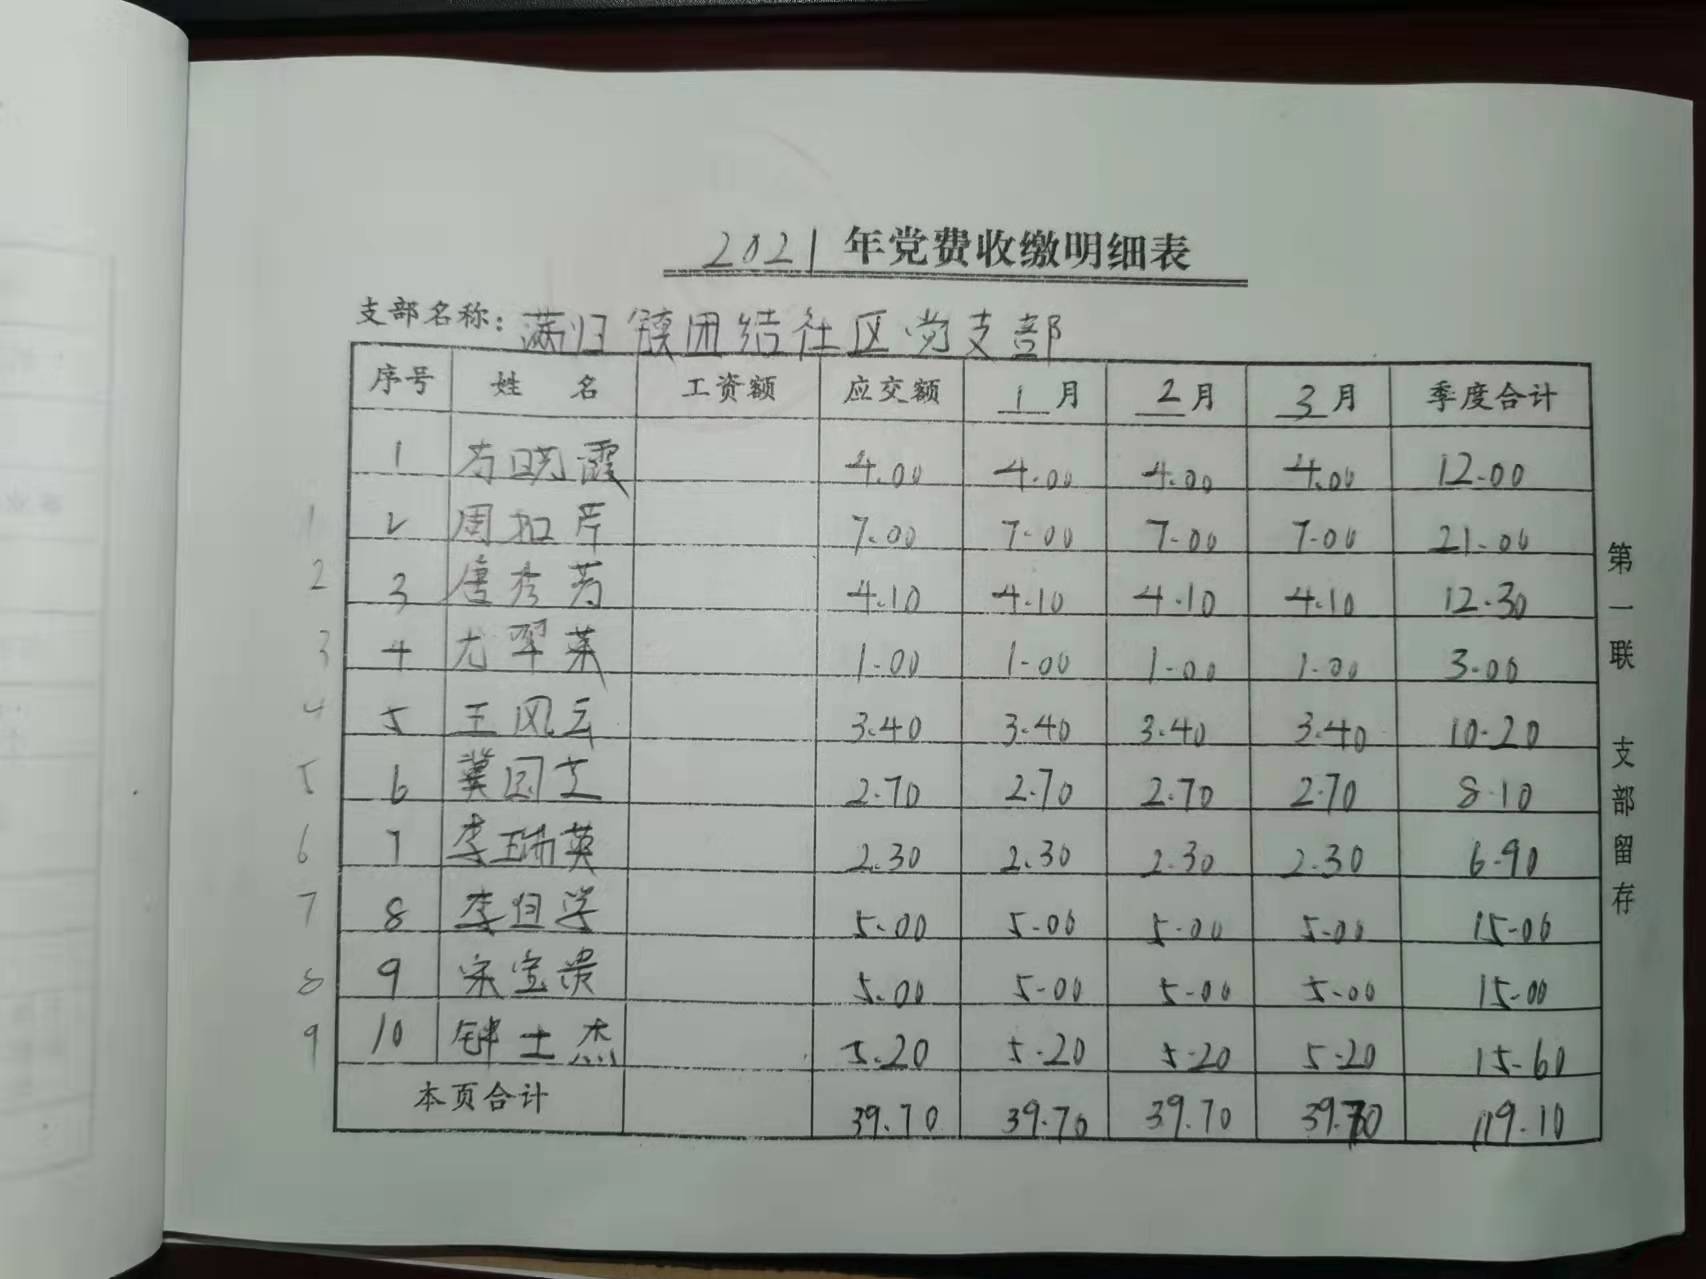 2021年党费收缴明细表
支部名称：满归镇团结社区党支部
序号 姓名 工资额 应交额 1月 2月 3月 季度合计
1 晓霞 4.00 4.00 4.00 4.00 12.00
1 2 周 7.00 7.00 7.00 7.00 21.00
2 3 唐秀芳 4.10 4.10 4.10 4.10 12.30
3 4 尤翠莱 1.00 1.00 1.00 1.00 3.00
4 5 王凤云 3.40 3.40 3.40 3.40 10.20
5 6 冀国文 2.70 2.70 2.70 2.70 8.10
6 7 李瑞英 2.30 2.30 2.30 2.30 6.90
7 8 李学 5.00 5.00 5.00 5.00 15.00
8 9 宋宝贵 5.00 5.00 5.00 5.00 15.00
9 10 钟士杰 5.20 5.20 5.20 5.20 15.60
本页合计 39.70 39.70 39.70 39.70 119.10
第一联 支部留存